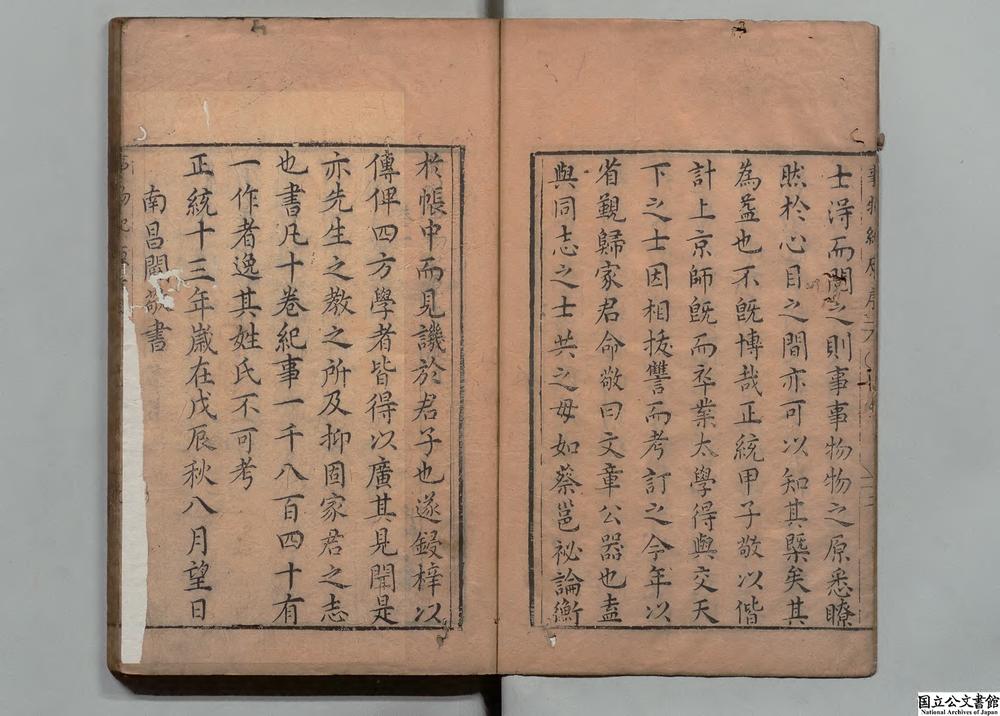 士淂而閱之則事事物物之原悉瞭
然於心目之間亦可以知其槩矣其
為益也不旣博哉正統甲子敬以偕
計上京師旣而卒業太學得與交天
下之士因相挍讐而考訂之今年以
省覲歸家君命敬曰文章公器也盍
與同志之士共之毋如蔡邕祕論衡
於帳中而見譏於君子也遂鋟梓以
傳俾四方學者皆得以廣其見聞是
亦先生之教之所及抑固家君之志
也書凡十卷紀事一千八百四十有
一作者逸其姓氏不可考
正統十三年歲在戊辰秋八月望日
南昌閻敬書
国立公文書館
National Archives of Japan